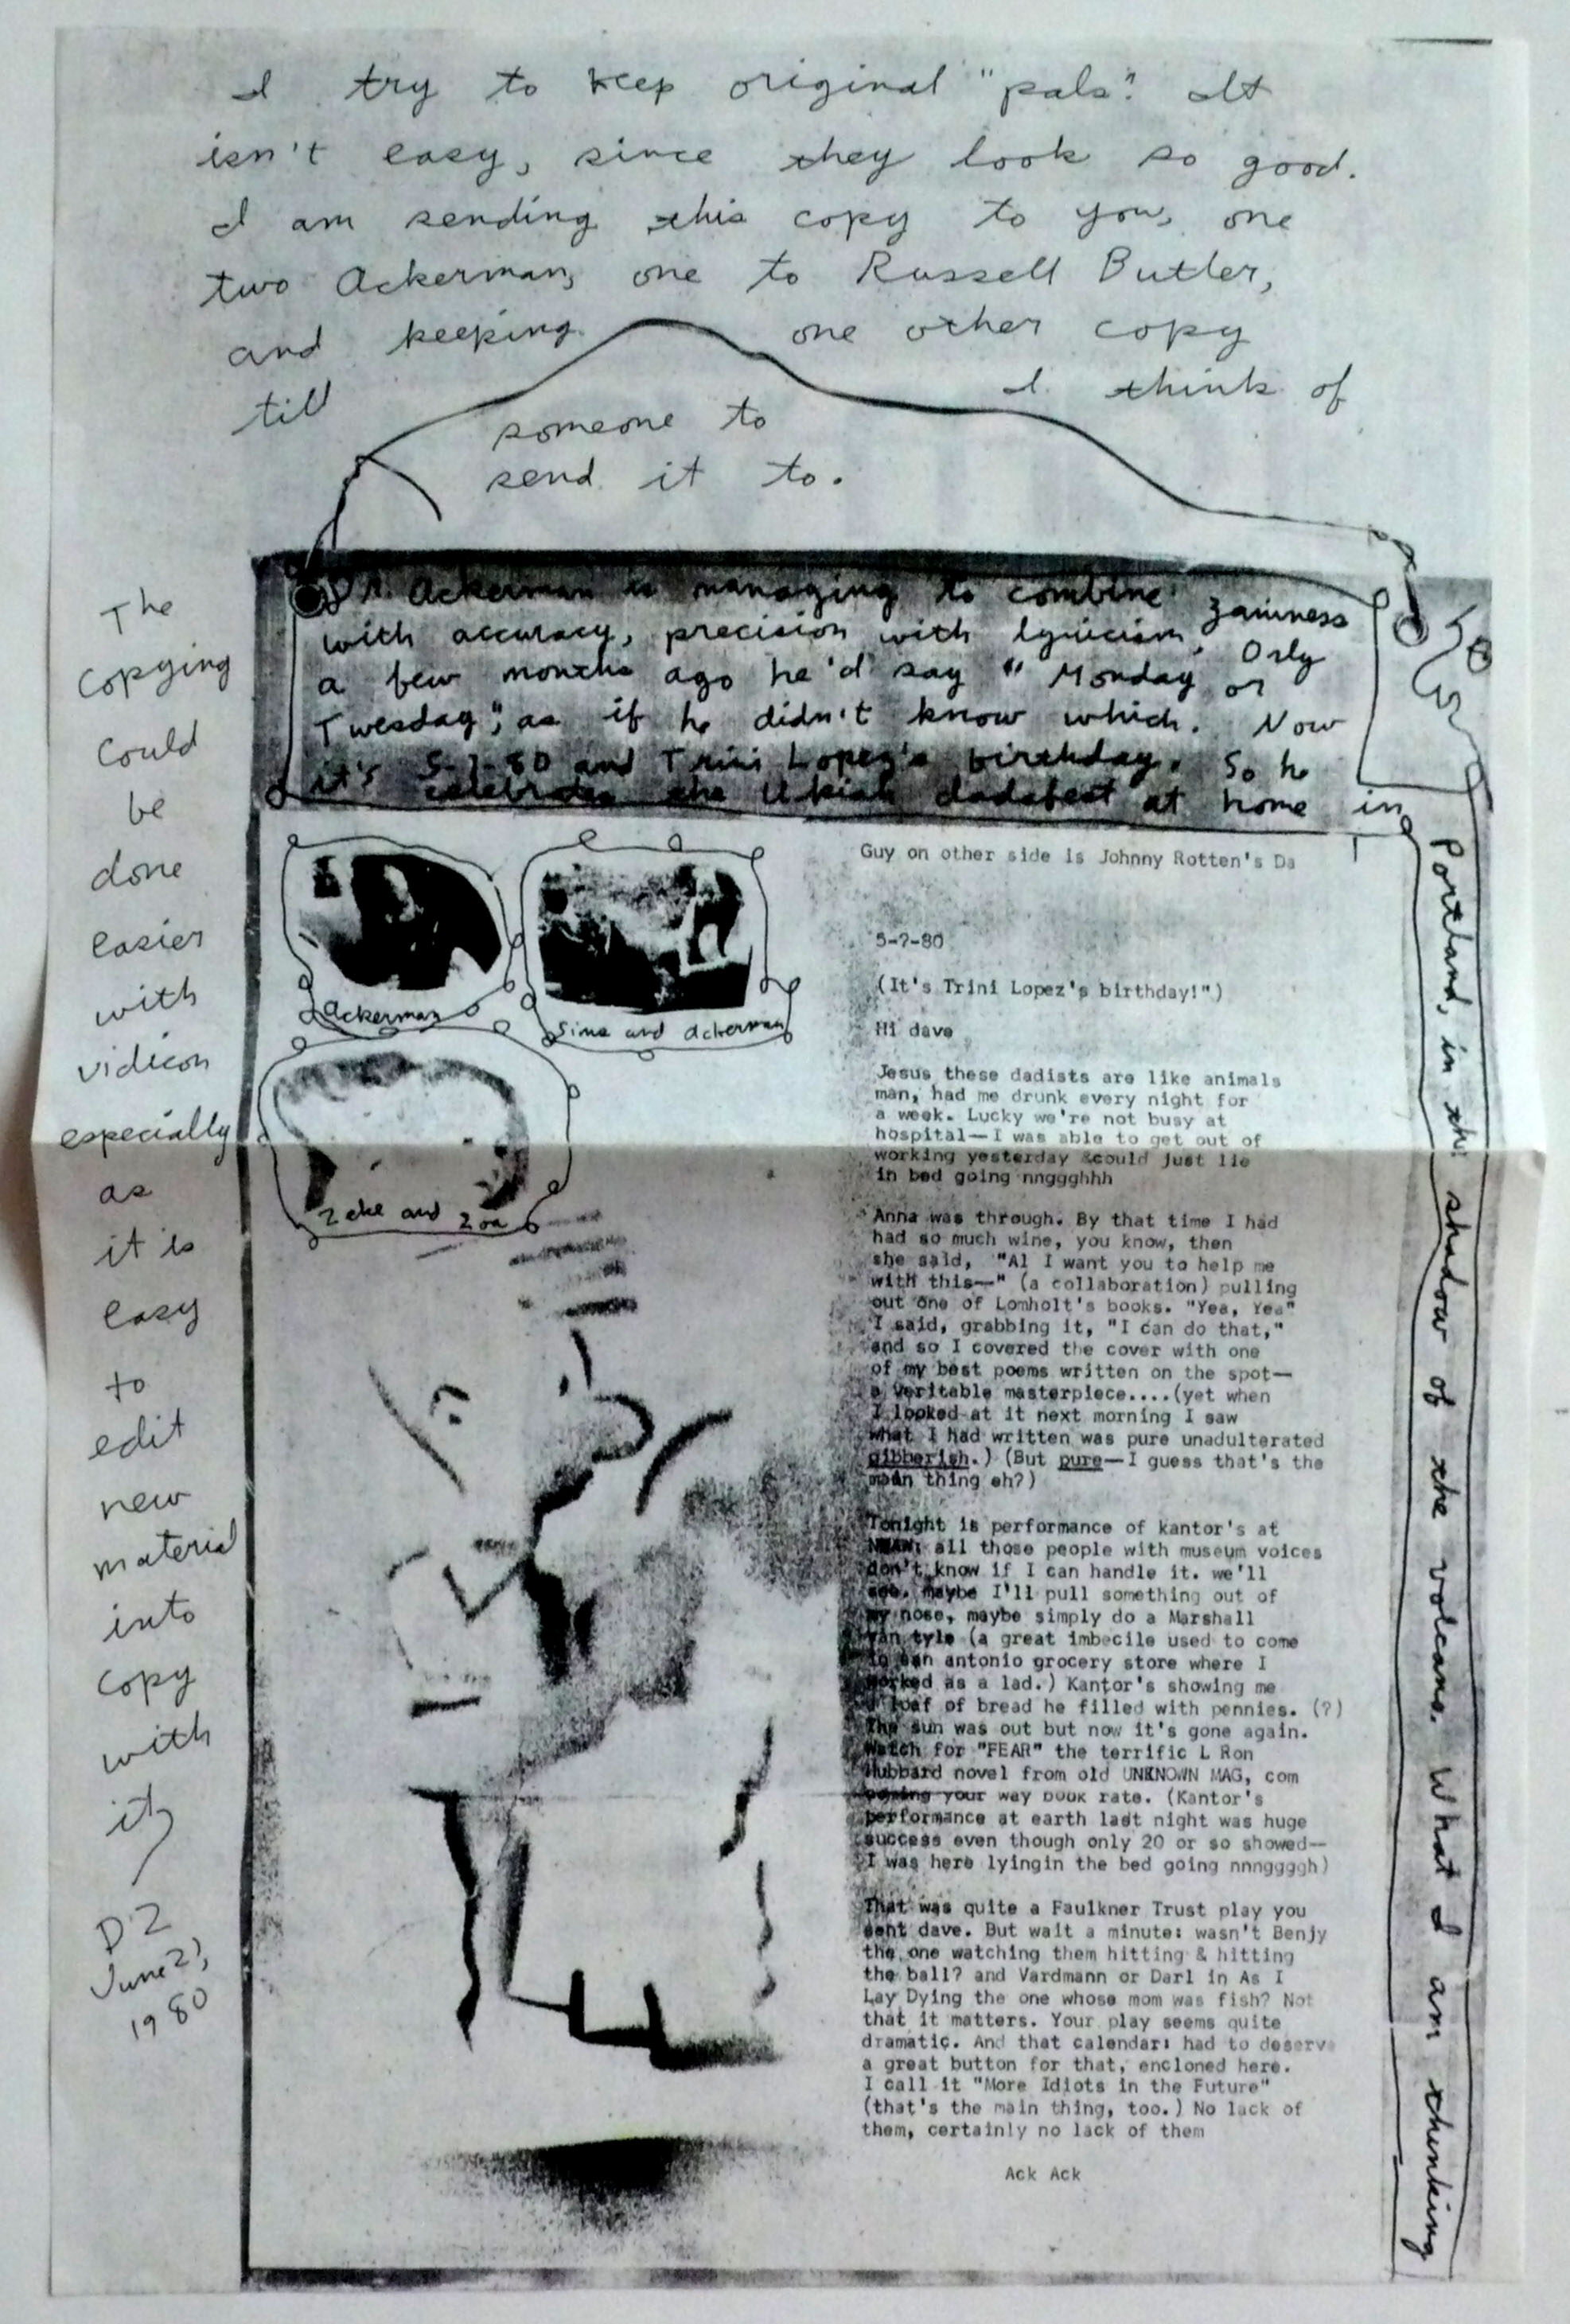 I try to keep original "pals". It
isn't easy, since they look so good.
I am sending this copy to you, one
two Ackerman, one to Russell Butler,
and keeping one other copy
till I think of
someone to
send it to.
The
copying
could
be
done
easier
with
vidicon
especially
as
it is
easy
to
edit
new
material
into
copy
with
it
DZ
June 2),
1980
Dr. Ackerman is managing to combine zaniness
with accuracy, precision with lyricism. Only
a few months ago he'd say "Monday or
Tuesday", as if he didn't know which. Now
it's 5-?-80 and Trini Lopez's birthday. So he
celebrates the Ukiah dadafest at home in
Portland, in the shadow of the volcano. What I am thinking
Ackerman
Sims and Ackerman
Zeke and Zoa
Guy on other side is Johnny Rotten's Da
5-?-80
(It's Trini Lopez's birthday!")
Hi dave
Jesus these dadists are like animals
man, had me drunk every night for
a week. Lucky we're not busy at
hospital—I was able to get out of
working yesterday &could just lie
in bed going nnggghhh
Anna was through. By that time I had
had so much wine, you know, then
she said, "Al I want you to help me
with this—" (a collaboration) pulling
out one of Lomholt's books. "Yea, Yea"
I said, grabbing it, "I can do that,"
and so I covered the cover with one
of my best poems written on the spot—
a veritable masterpiece....(yet when
I looked at it next morning I saw
what I had written was pure unadulterated
gibberish.) (But pure—I guess that's the
main thing eh?)
Tonight is performance of kantor's at
all those people with museum voices
don't know if I can handle it. we'll
see. maybe I'll pull something out of
my nose, maybe simply do a Marshall
Van tyle (a great imbecile used to come
to san antonio grocery store where I
worked as a lad.) Kantor's showing me
a loaf of bread he filled with pennies. (?)
The sun was out but now it's gone again.
Watch for "FEAR" the terrific L Ron
Hubbard novel from old UNKNOWN MAG, com
your way book rate. (Kantor's
performance at earth last night was huge
success even though only 20 or so showed—
I was here lyingin the bed going nnnggggh)
That was quite a Faulkner Trust play you
sent dave. But wait a minute: wasn't Benjy
the one watching them hitting & hitting
the ball? and Vardmann or Darl in As I
Lay Dying the one whose mom was fish? Not
that it matters. Your play seems quite
dramatic. And that calendar: had to deserve
a great button for that, encloned here.
I call it "More Idiots in the Future"
(that's the main thing, too.) No lack of
them, certainly no lack of them
Ack Ack